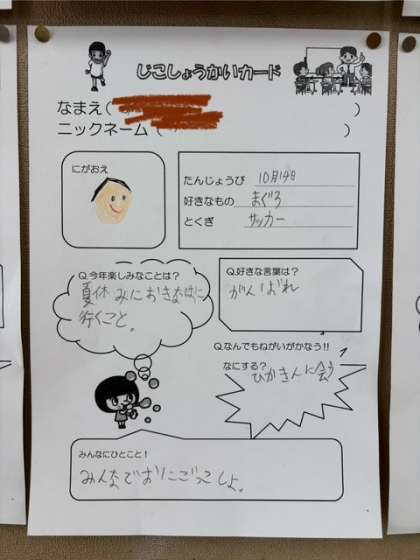 じこしょうかいカード
なまえ( )
ニックネーム( )
にがおえ
たんじょうび 10月14日
好きなもの まぐろ
とくぎ サッカー
Q.今年楽しみなことは?
夏休みにおきなはに
行くこと。
Q.好きな言葉は?
がんばれ
Q.なんでもねがいがかなう!!
なにする?
ひかきんに会う
みんなにひとこと!
みんなでおにごっこしよ。